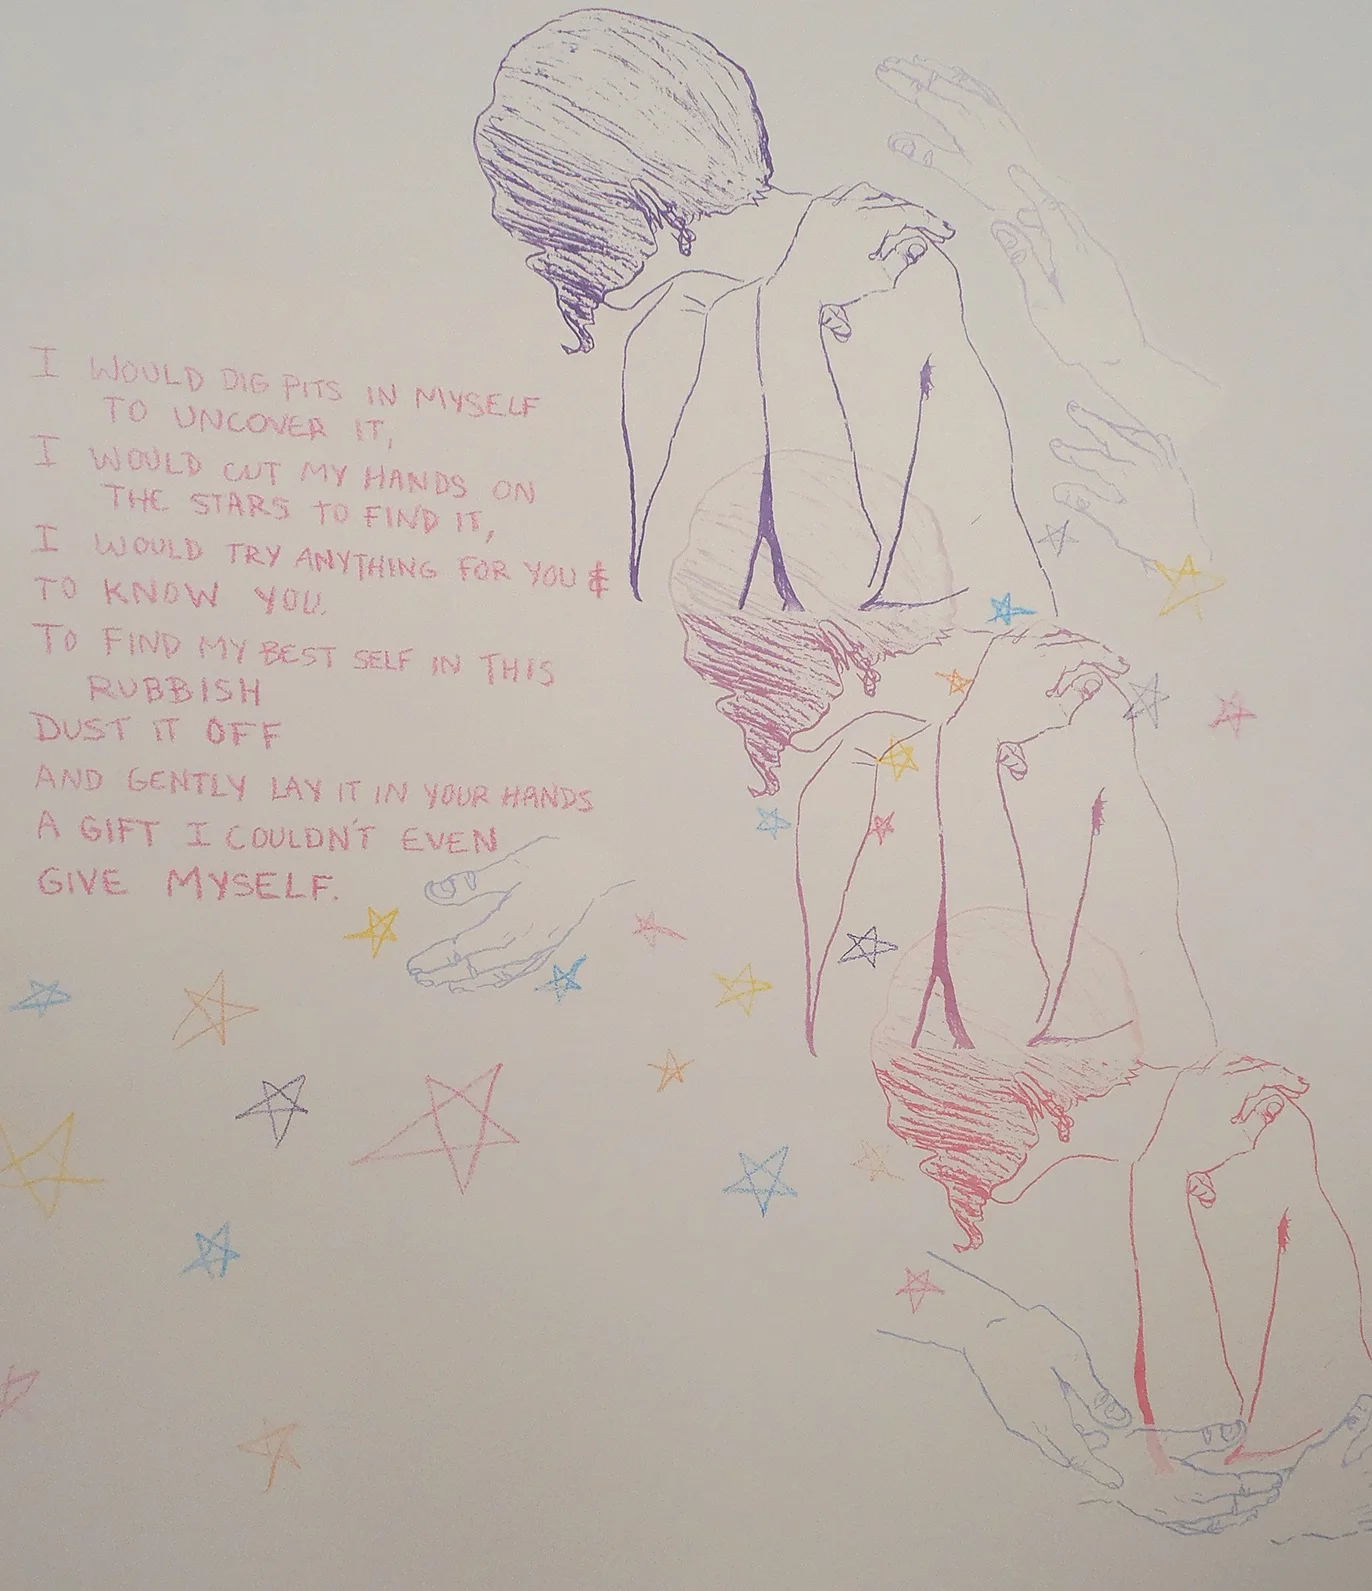 I WOULD DIG PITS IN MYSELF
TO UNCOVER IT,
I WOULD CUT MY HANDS ON
THE STARS TO FIND IT,
I WOULD TRY ANYTHING FOR YOU &
TO KNOW YOU.
TO FIND MY BEST SELF IN THIS
RUBBISH
DUST IT OFF
AND GENTLY LAY IT IN YOUR HANDS
A GIFT I COULDN'T EVEN
GIVE MYSELF.